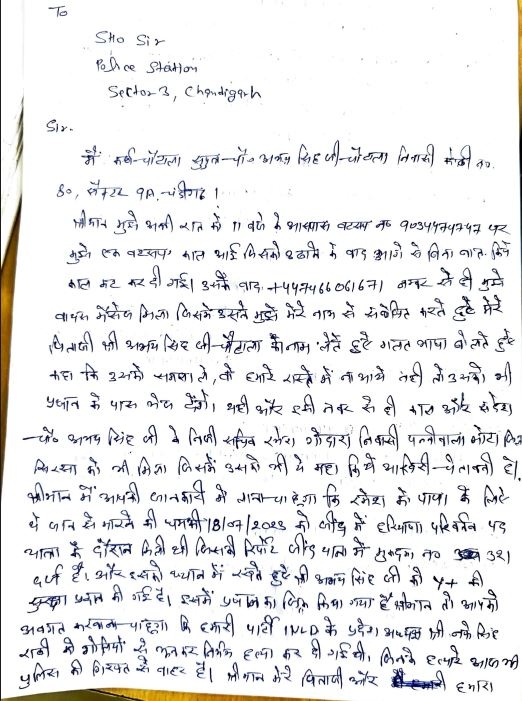 To
SHO Sir
Police Station
Sector 3, Chandigarh
Sir.
मैं कर्ण चौटाला सुपुत्र चौ० अभय सिंह जी चौटाला निवासी कोठी न०
80, सैक्टर 9A, चंडीगढ़।
श्रीमान मुझे अभी रात को 11 बजे के आसपास वटसप न० 9034474747 पर
मुझे एक वटसप काल आई जिसको उठाने के बाद आगे से बिना बात किये
काल कट कर दी गई। उसके बाद +447466061671 नम्बर से ही मुझे
वायस मैसेज मिला जिसमें उसने मुझे मेरे नाम से संबोधित करते हुए मेरे
पिताजी श्री अभय सिंह जी चौटाला का नाम लेते हुए गलत भाषा बोलते हुए
कहा कि उसको समझा ले, वो हमारे रास्ते में ना आये नहीं तो उसको भी
प्रधान के पास भेज देंगे। यही और इसी नंबर से ही काल और संदेश
चौ० अभय सिंह जी के निजी सचिव रमेश गोदारा निवासी पन्नीवाला मोटा जिला
सिरसा को भी मिला जिसमें उसको भी ये कहा कि ये आखिरी चेतावनी है।
श्रीमान मैं आपकी जानकारी में लाना चाहूंगा कि रमेश को पापा के लिए
ये जान से मारने की धमकी 18/07/2023 को जींद में हरियाणा परिवर्तन पद
यात्रा के दौरान मिली थी जिसकी रिपोर्ट जींद थाना में मुकदमा न० 321
दर्ज है। और इसको ध्यान में रखते हुए श्री अभय सिंह जी को Y+ की
सुरक्षा प्रदान की गई है। इसमें प्रधान का जिक्र किया गया है श्रीमान तो आपको
अवगत करवाना चाहूंगा कि हमारी पार्टी INLD के प्रदेश अध्यक्ष श्री नफे सिंह
राठी की गोलियों से भूनकर निर्मम हत्या कर दी गई थी, जिनके हत्यारे आज भी
पुलिस की गिरफ्त से बाहर हैं। श्रीमान मेरे पिताजी और हमारा